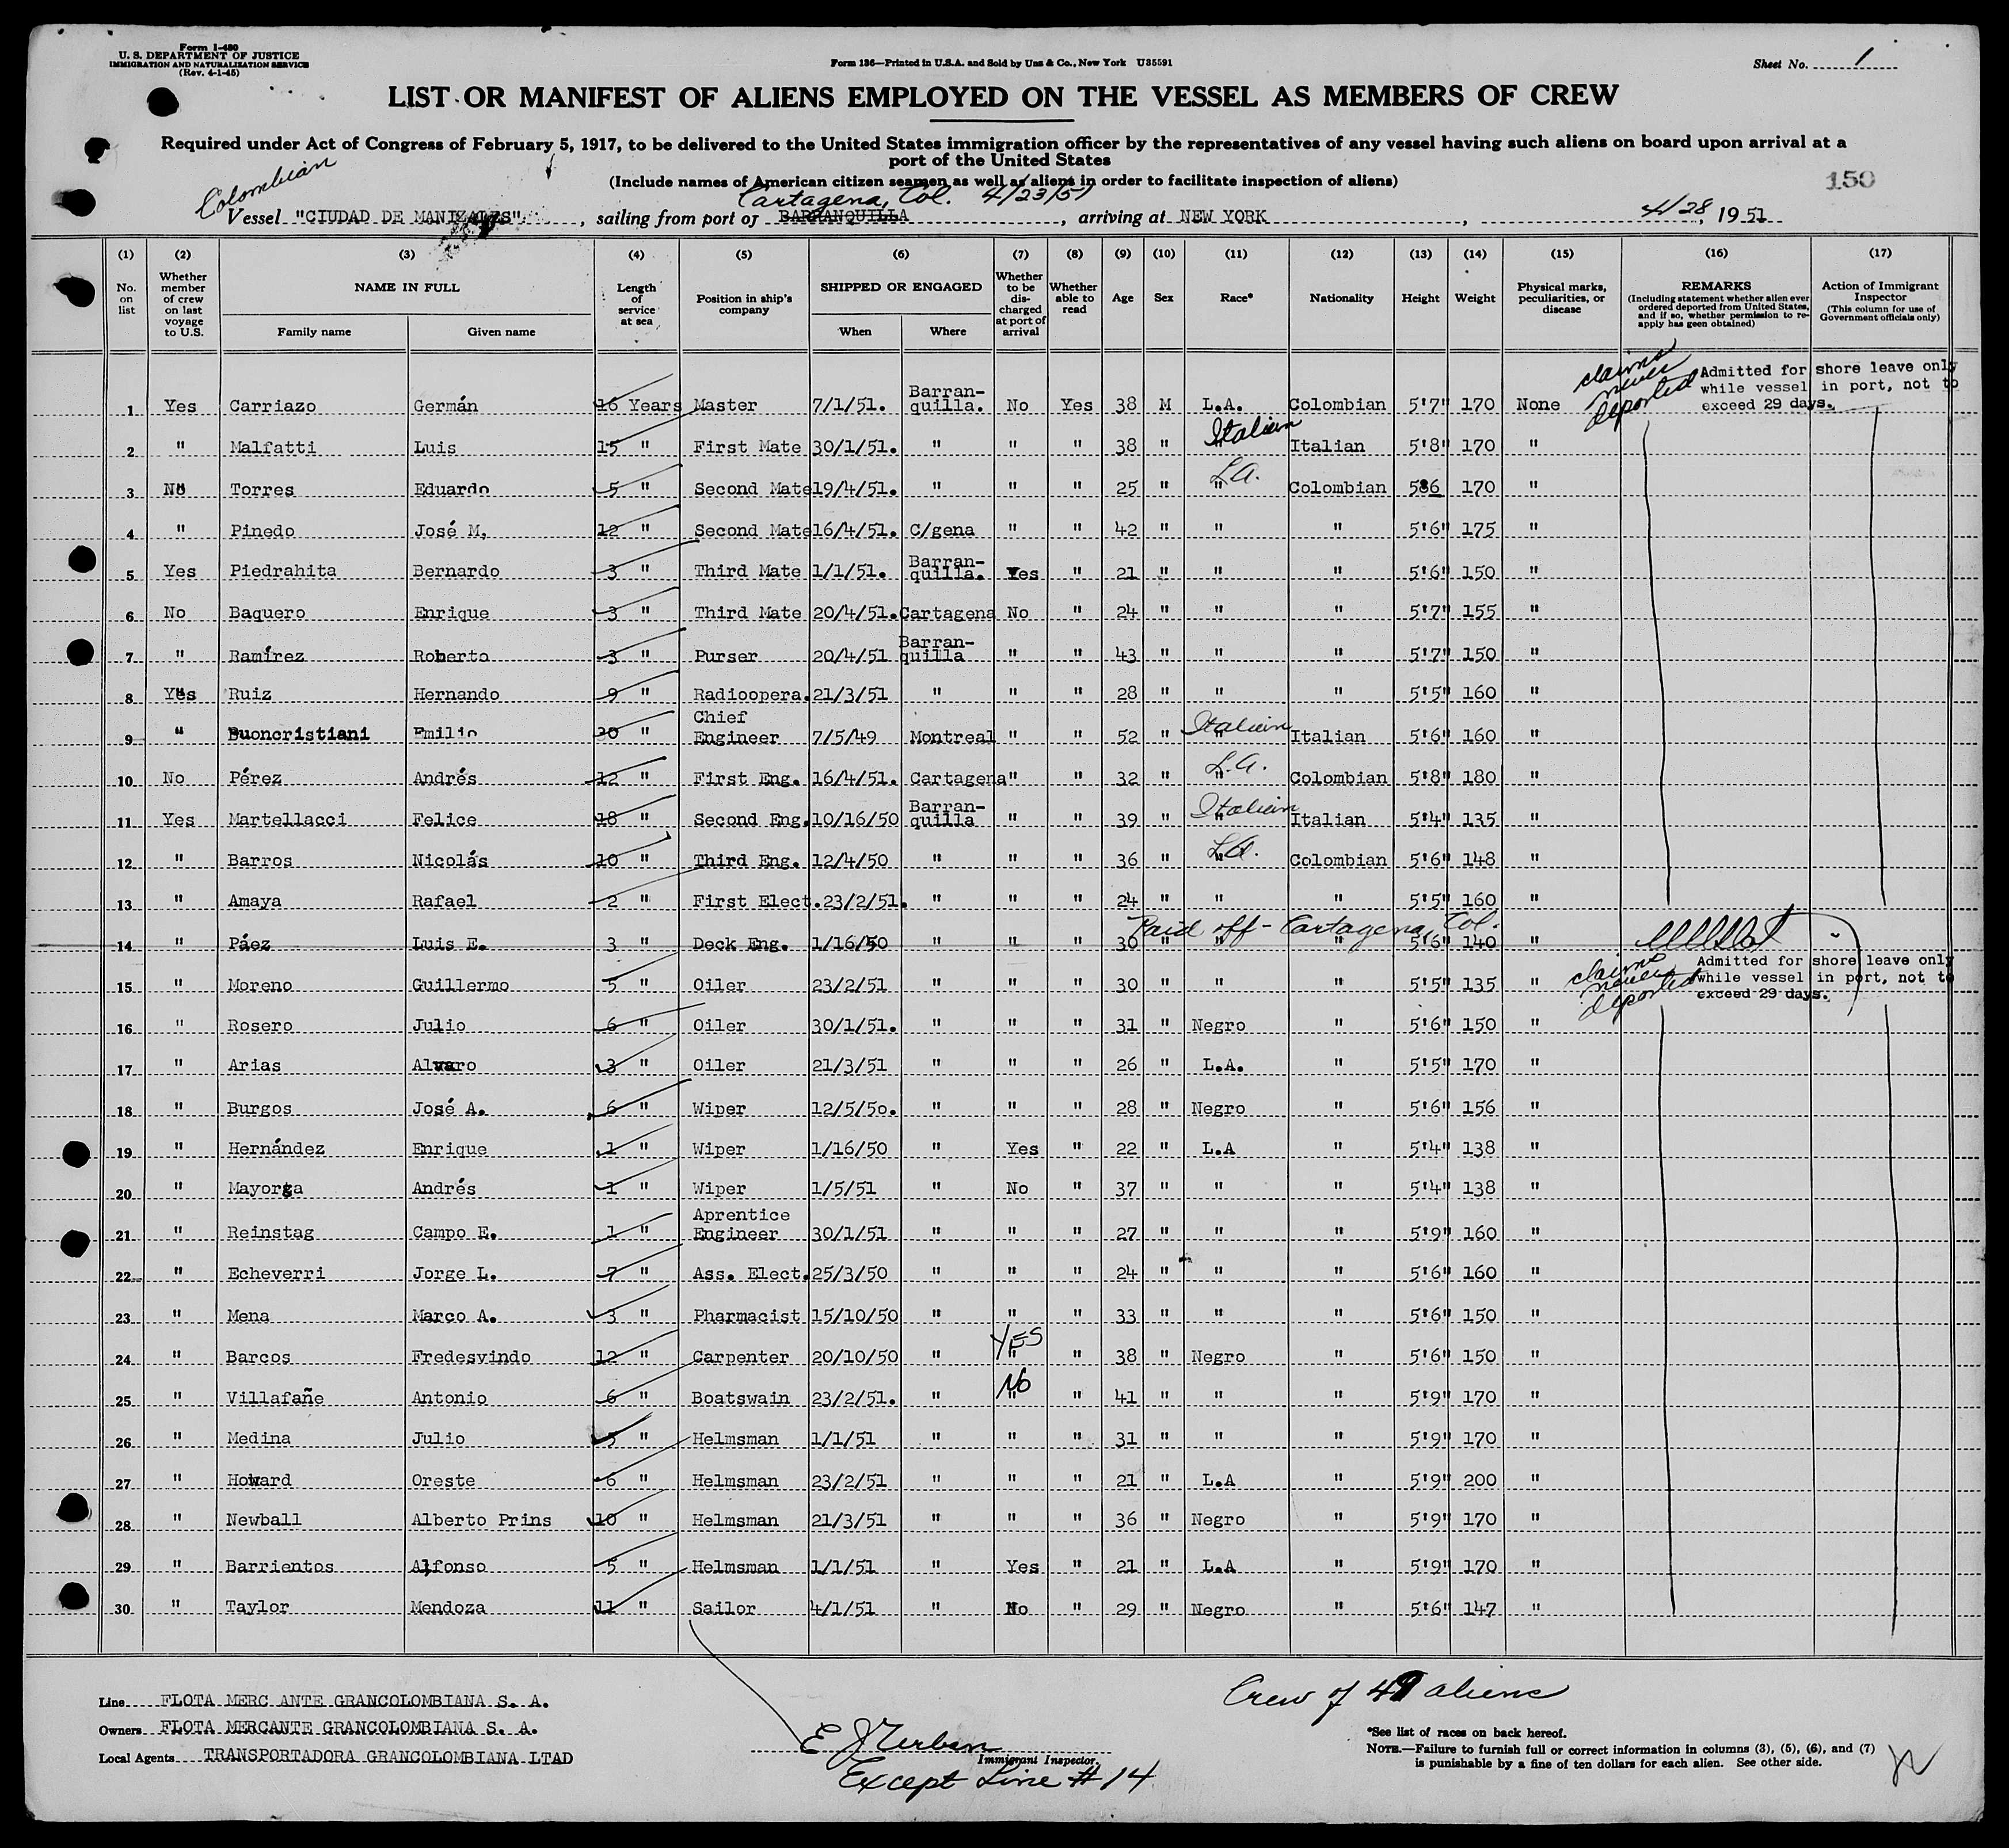 Form I-480
U. S. DEPARTMENT OF JUSTICE
IMMIGRATION AND NATURALIZATION SERVICE
(Rev. 4-1-45)
Form 136—Printed in U.S.A. and Sold by Unz & Co., New York U35591
Sheet No. 1
LIST OR MANIFEST OF ALIENS EMPLOYED ON THE VESSEL AS MEMBERS OF CREW
Required under Act of Congress of February 5, 1917, to be delivered to the United States immigration officer by the representatives of any vessel having such aliens on board upon arrival at a
port of the United States
(Include names of American citizen seamen as well as aliens in order to facilitate inspection of aliens)
150
Colombian
Cartagena, Col. 4/23/51
Vessel "CIUDAD DE MANIZALES", sailing from port of BARRANQUILLA, arriving at NEW YORK, 4/28, 1951
(1) (2) (3) (4) (5) (6) (7) (8) (9) (10) (11) (12) (13) (14) (15) (16) (17)
No. on list
Whether member of crew on last voyage to U.S.
NAME IN FULL
Family name
Given name
Length of service at sea
Position in ship's company
SHIPPED OR ENGAGED
When
Where
Whether to be discharged at port of arrival
Whether able to read
Age
Sex
Race*
Nationality
Height
Weight
Physical marks, peculiarities, or disease
REMARKS
(Including statement whether alien ever ordered deported from United States, and if so, whether permission to reapply has geen obtained)
Action of Immigrant Inspector
(This column for use of Government officials only)
claims never deported
Admitted for shore leave only
while vessel in port, not to
exceed 29 days.
1 Yes Carriazo Germán 16 Years Master 7/1/51. Barran-quilla. No Yes 38 M L.A. Colombian 5'7" 170 None
2 " Malfatti Luis 15 " First Mate 30/1/51. " " " 38 " Italian Italian 5'8" 170 "
3 No Torres Eduardo 5 " Second Mate 19/4/51. " " " 25 " L.A. " Colombian 5'6 170 "
4 " Pinedo José M, 12 " Second Mate 16/4/51. C/gena " " 42 " " " 5'6" 175 "
5 Yes Piedrahita Bernardo 3 " Third Mate 1/1/51. Barran-quilla. Yes " 21 " " " 5'6" 150 "
6 No Baquero Enrique 3 " Third Mate 20/4/51. Cartagena No " 24 " " " 5'7" 155 "
7 " Ramírez Roberto 3 " Purser 20/4/51 Barran-quilla " " 43 " " " 5'7" 150 "
8 Yes Ruiz Hernando 9 " Radioopera. 21/3/51 " " " 28 " " " 5'5" 160 "
9 " Buoncristiani Emilio 20 " Chief Engineer 7/5/49 Montreal " " 52 " Italian Italian 5'6" 160 "
10 No Pérez Andrés 12 " First Eng. 16/4/51. Cartagena " " 32 " L.A. " Colombian 5'8" 180 "
11 Yes Martellacci Felice 18 " Second Eng. 10/16/50 Barran-quilla " " 39 " Italian Italian 5'4" 135 "
12 " Barros Nicolás 10 " Third Eng. 12/4/50 " " " 36 " L.A. Colombian 5'6" 148 "
13 " Amaya Rafael 2 " First Elect. 23/2/51. " " " 24 " " " 5'5" 160 "
Paid off - Cartagena, Col.
14 " Páez Luis E. 3 " Deck Eng. 1/16/50 " " " 30 " " " 5'6" 140 "
claims never deported
Admitted for shore leave only
while vessel in port, not to
exceed 29 days.
15 " Moreno Guillermo 5 " Oiler 23/2/51 " " " 30 " " " 5'5" 135 "
16 " Rosero Julio 6 " Oiler 30/1/51. " " " 31 " Negro " 5'6" 150 "
17 " Arias Alvaro 3 " Oiler 21/3/51 " " " 26 " L.A. " 5'5" 170 "
18 " Burgos José A. 6 " Wiper 12/5/50. " " " 28 " Negro " 5'6" 156 "
19 " Hernández Enrique 1 " Wiper 1/16/50 " Yes " 22 " L.A " 5'4" 138 "
20 " Mayorga Andrés 1 " Wiper 1/5/51 " No " 37 " " " 5'4" 138 "
21 " Reinstag Campo E. 1 " Aprentice Engineer 30/1/51 " " " 27 " " " 5'9" 160 "
22 " Echeverri Jorge L. 7 " Ass. Elect. 25/3/50 " " " 24 " " " 5'6" 160 "
23 " Mena Marco A. 3 " Pharmacist 15/10/50 " " " 33 " " " 5'6" 150 "
24 " Barcos Fredesvindo 12 " Carpenter 20/10/50 " YES " 38 " Negro " 5'6" 150 "
25 " Villafañe Antonio 6 " Boatswain 23/2/51. " No " 41 " " " 5'9" 170 "
26 " Medina Julio 5 " Helmsman 1/1/51 " " " 31 " " " 5'9" 170 "
27 " Howard Oreste 6 " Helmsman 23/2/51 " " " 21 " L.A " 5'9" 200 "
28 " Newball Alberto Prins 10 " Helmsman 21/3/51 " " " 36 " Negro " 5'9" 170 "
29 " Barrientos Alfonso 5 " Helmsman 1/1/51 " Yes " 21 " L.A " 5'9" 170 "
30 " Taylor Mendoza 11 " Sailor 4/1/51 " No " 29 " Negro " 5'6" 147 "
Line FLOTA MERC ANTE GRANCOLOMBIANA S. A.
Owners FLOTA MERCANTE GRANCOLOMBIANA S. A.
Local Agents TRANSPORTADORA GRANCOLOMBIANA LTAD
Immigrant Inspector.
Except Line # 14
Crew of 49 aliens
*See list of races on back hereof.
NOTE.—Failure to furnish full or correct information in columns (3), (5), (6), and (7)
is punishable by a fine of ten dollars for each alien. See other side.